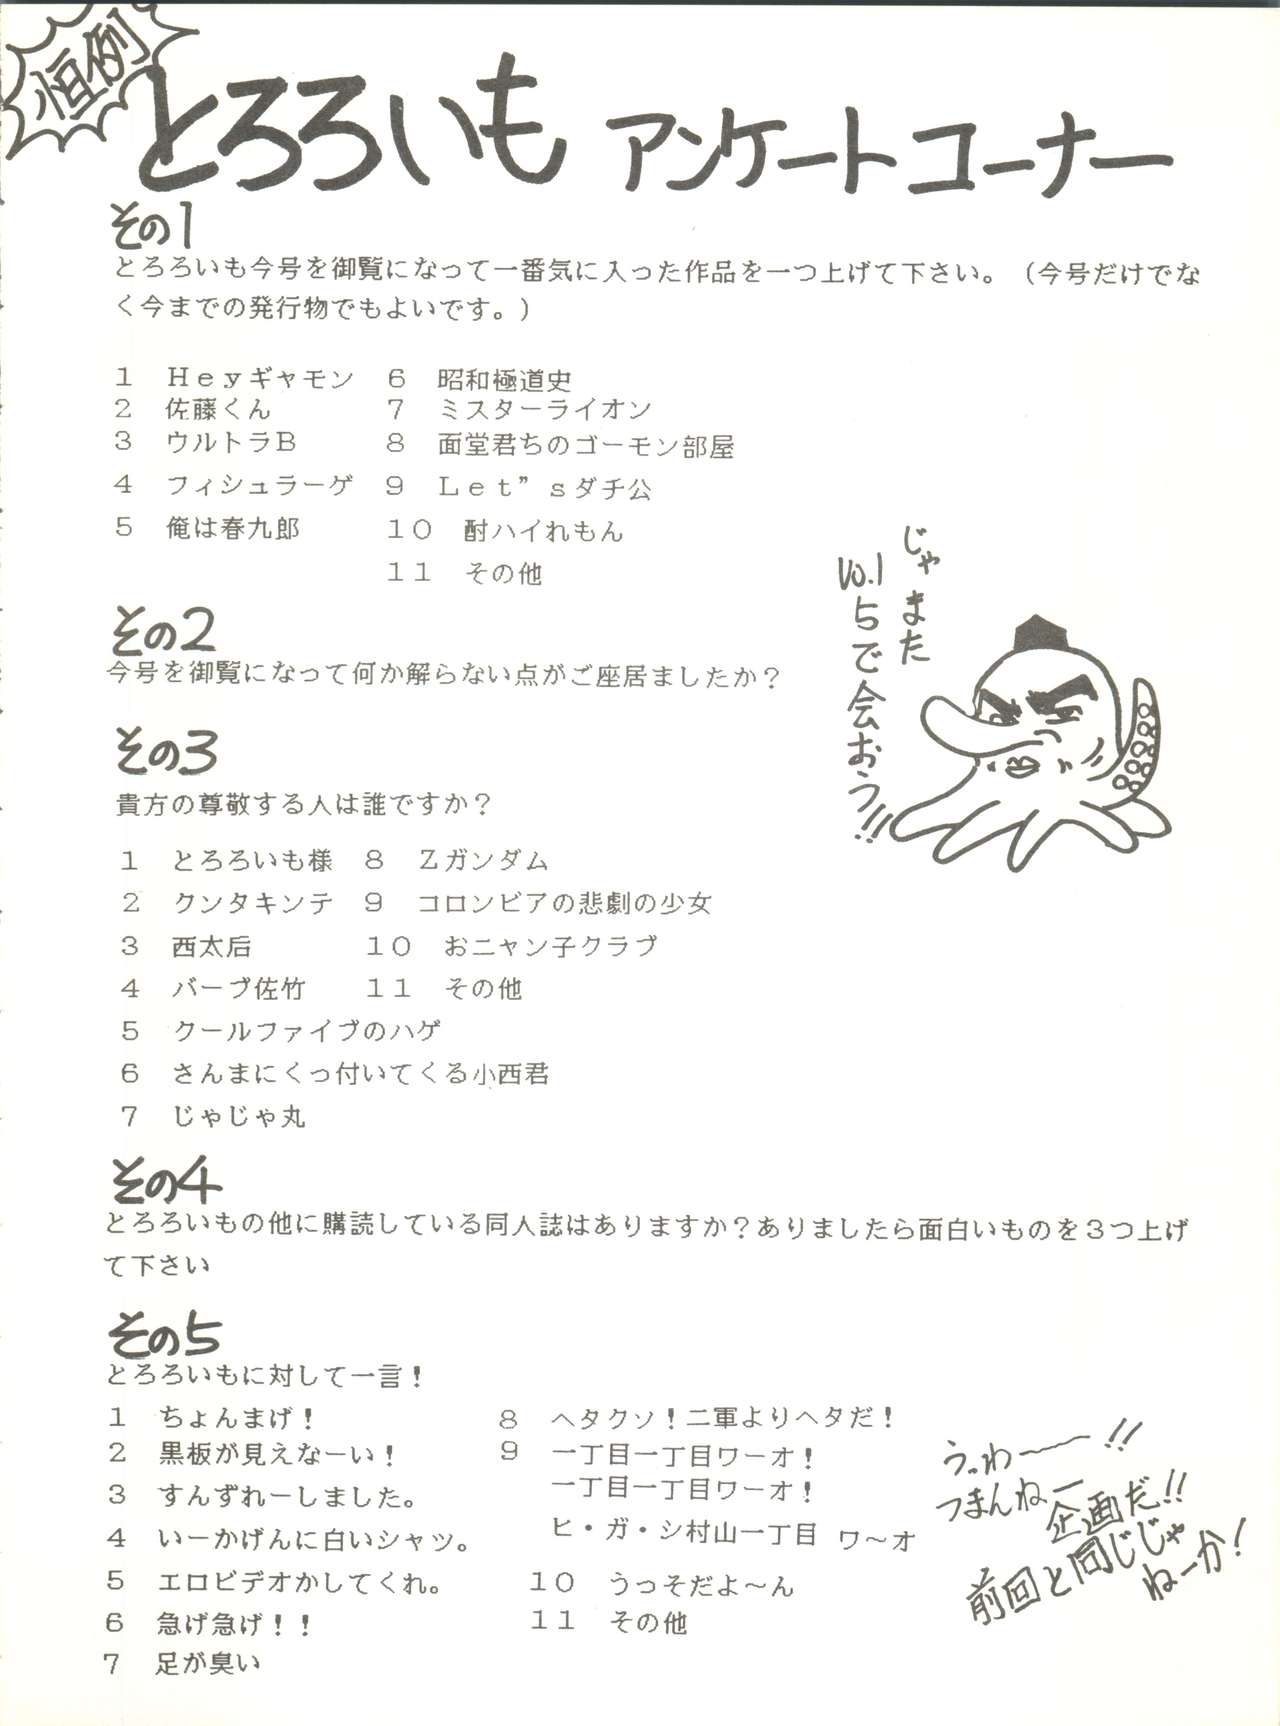 恒例
とろろいも アンケートコーナー
その1
とろろいも今号を御覧になって一番気に入った作品を一つ上げて下さい。（今号だけでな
く今までの発行物でもよいです。）
1 Heyギャモン 6 昭和極道史
2 佐藤くん 7 ミスターライオン
3 ウルトラB 8 面堂君ちのゴーモン部屋
4 フィシュラーゲ 9 Let”sダチ公
5 俺は春九郎 10 酎ハイれもん
11 その他
じゃまた
Vo.15で会おう!!
その2
今号を御覧になって何か解らない点がご座居ましたか？
その3
貴方の尊敬する人は誰ですか？
1 とろろいも様 8 Zガンダム
2 クンタキンテ 9 コロンビアの悲劇の少女
3 西太后 10 おニャン子クラブ
4 バーブ佐竹 11 その他
5 クールファイブのハゲ
6 さんまにくっ付いてくる小西君
7 じゃじゃ丸
その4
とろろいもの他に購読している同人誌はありますか？ありましたら面白いものを3つ上げ
て下さい
その5
とろろいもに対して一言！
1 ちょんまげ！
2 黒板が見えなーい！
3 すんずれーしました。
4 いーかげんに白いシャツ。
5 エロビデオかしてくれ。
6 急げ急げ！！
7 足が臭い
8 ヘタクソ！二軍よりヘタだ！
9 一丁目一丁目ワーオ！
一丁目一丁目ワーオ！
ヒ・ガ・シ村山一丁目 ワ～オ
10 うっそだよ～ん
11 その他
うっわ～～!!
つまんねー
企画だ!!
前回と同じじゃ
ねーか!